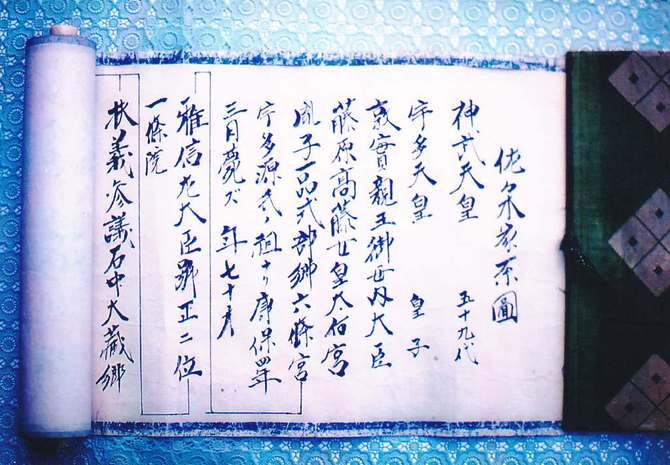 佐々木家系圖
神武天皇 五十九代
宇多天皇 皇子
敦實親王御母内大臣
藤原高藤女皇太后宮
胤子一品式部卿六條宮
宇多源氏ノ祖ナリ康保四年
三月薨ズ 年七十才
雅信左大臣 正二位
一條院
扶義参議右中大蔵卿